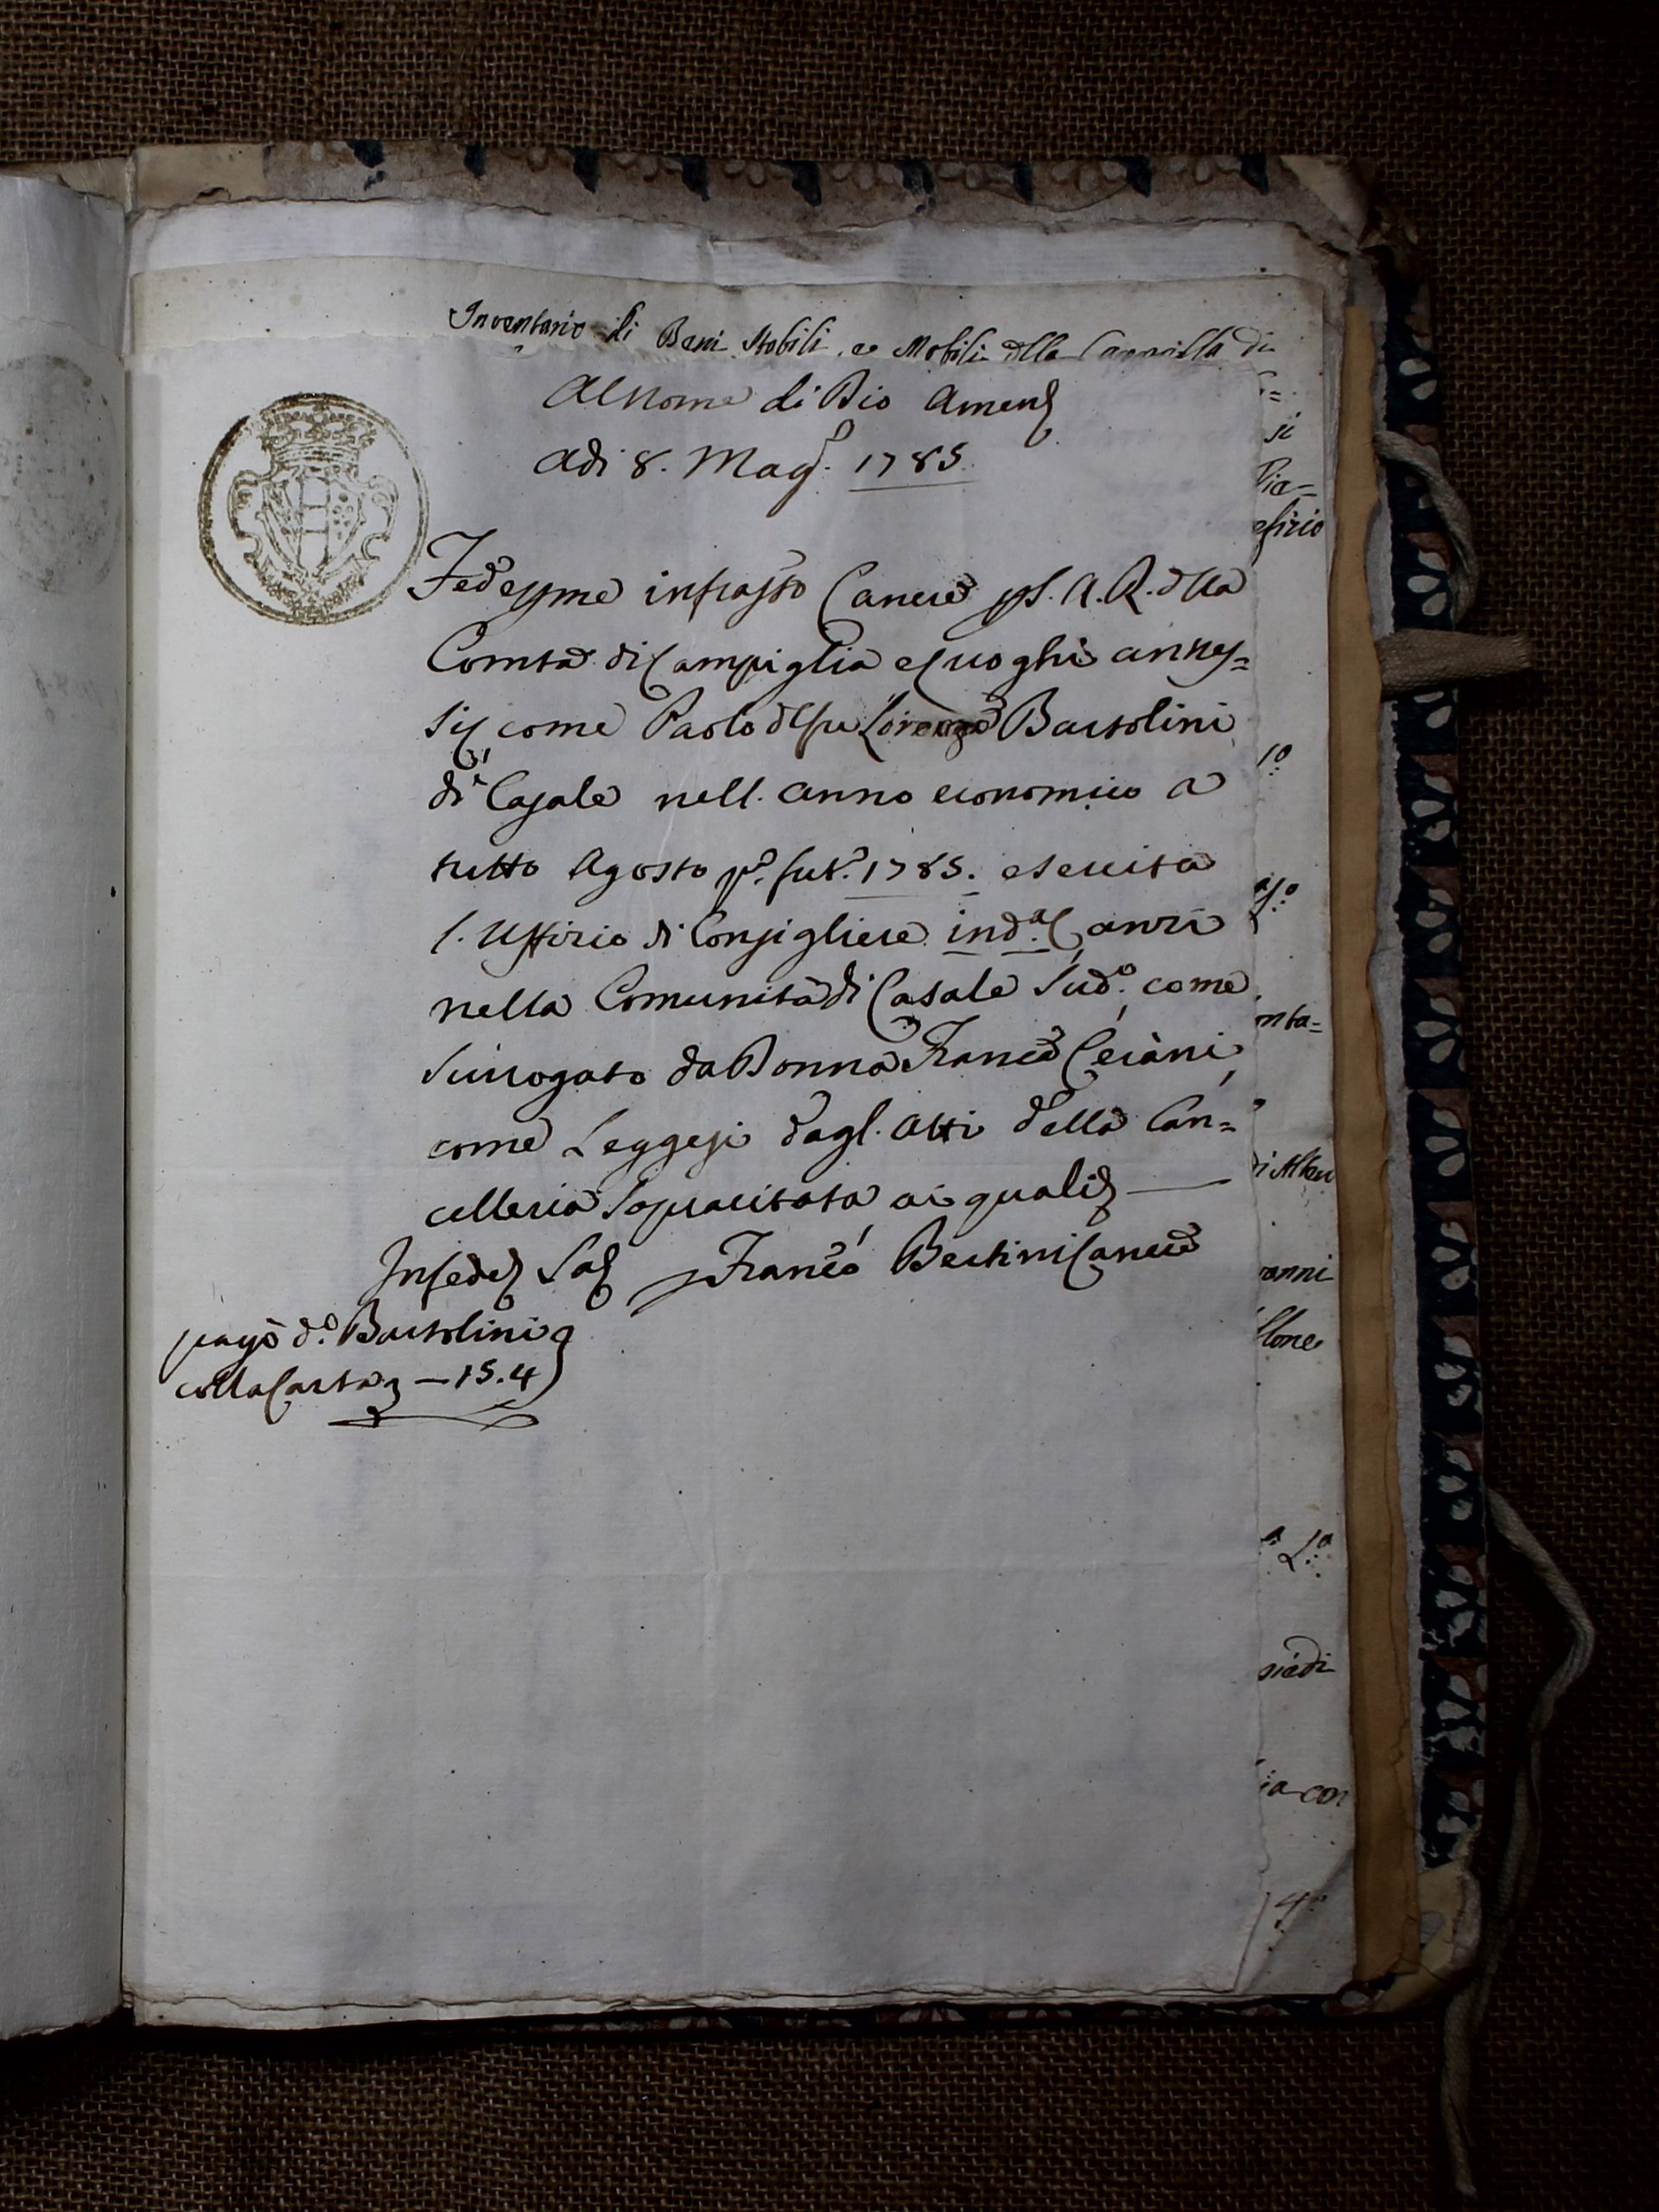 Inventario di Beni Stabili, e Mobili dlla Cappella di
Al Nome di Dio Amen
Adi 8. Magg. 1785.
Fede p me infratto Cancre p S. A. R. dlla
Comtà di Campiglia e Luoghi annes=
si, come Paolo dl fu Lorenzo Bartolini
di Casale nell. anno economico a
tutto Agosto p.o fut.o 1785. esercita
l. Uffizio di Consigliere ind.a C, anzi
nella Comunità di Casale sud.o come
surrogato da Donna Franca Ceràni,
come Leggesi dagl. Atti della Can=
celleria sopracitata ai quali
In fede Sal Franco Bertini Cancre
pagò d.o Bartolini
colla Carta — 15.4
si
Pia=
efizio
1.o
nta=
di Alber
vanni
llone
siedi
ia con